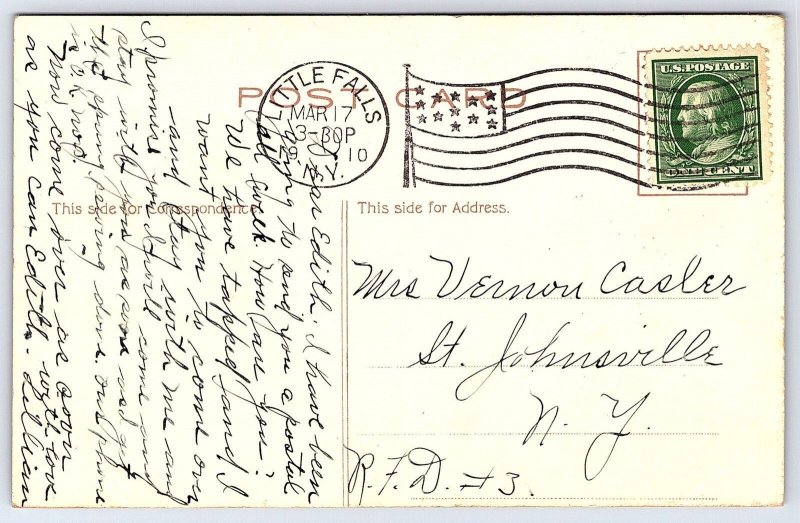 POST CARD
LITTLE FALLS
MAR 17
3-30P
1910
N.Y.
U.S. POSTAGE
ONE CENT
This side for Correspondence.
This side for Address.
Mrs Vernon Casler
St. Johnsville
N.Y.
R.F.D. #3.
Dear Edith. I have been
going to send you a postal
all week. How are you?
We have tapped and I
want you to come over
and stay with me and
I promise you I will come and
stay with you as soon as get
the spring sewing done. our phone
is 2 no
Now come over as soon
as you can Edith. with love
Lillian